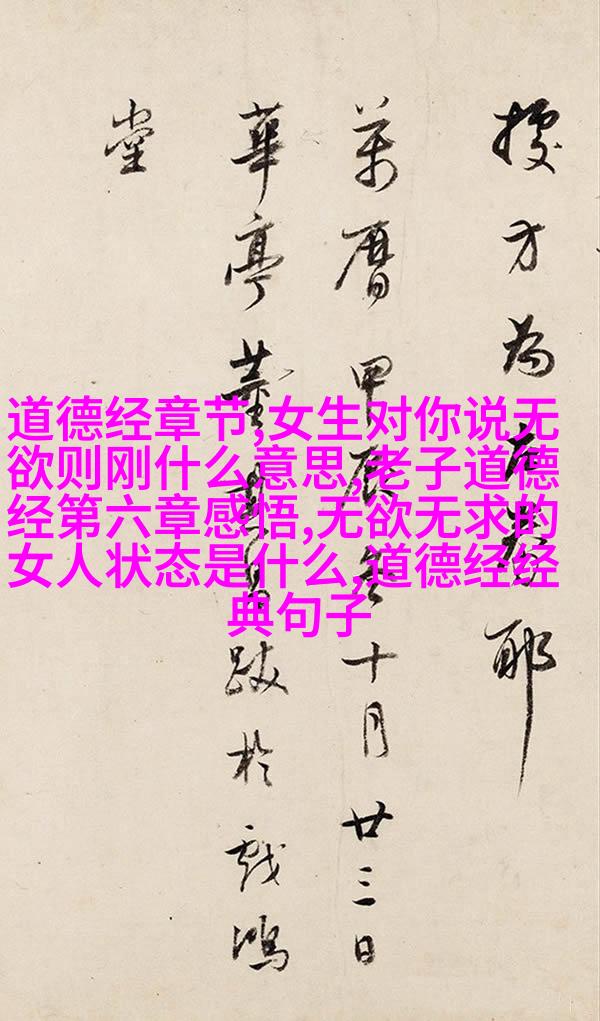 道德经章节,女生对你说无
欲则刚什么意思,老子道德
经第六章感悟,无欲无求的
女人状态是什么,道德经经
典句子
方為耶
萬曆甲辰冬十月廿三日
華亭董其昌跋於戲鴻
堂